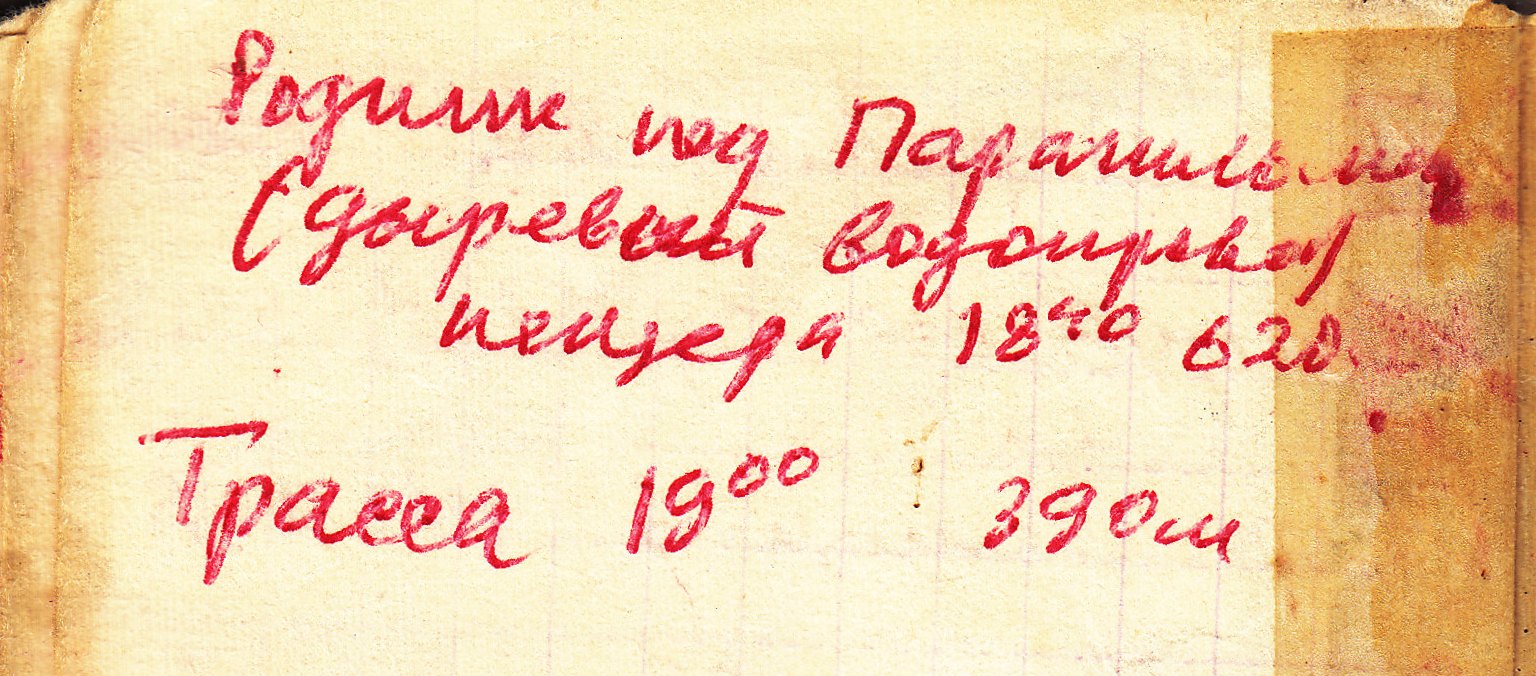 Родник под Парагильмен
(дыревый водопровод)
пещера 18⁴⁰ 620
Трасса 19⁰⁰ 390м